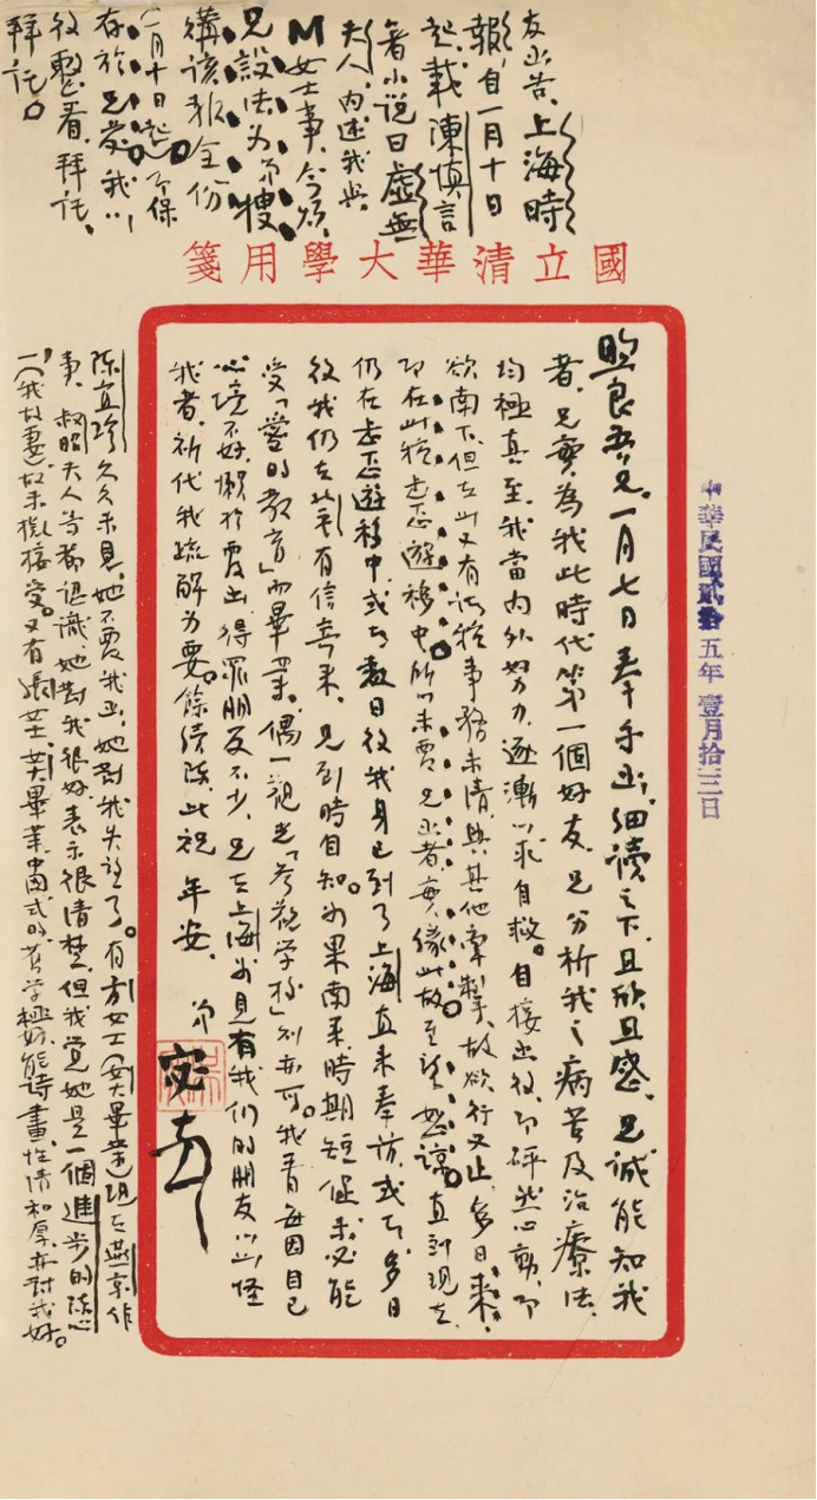 國立清華大學用箋
中華民國貳拾五年壹月拾三日
煦良吾兄。一月七日奉手函，細讀之下，且欣且感。兄誠能知我
者，兄實為我此時代第一個好友。兄分析我之病苦及治療法，
均極真至。我當內外努力，逐漸以求自救。自接函後，即砰然心動，即
欲南下。但在此又有諸種事務未清，與其他牽掣，故欲行又止。多日來，
即在此種忐忑遊移中。所以未覆兄函者，實緣此故。至望恕諒。直到現在，
仍在忐忑遊移中。或者數日後我身已到了上海，直來奉訪，或者多日
後我仍在北平，有信寄來。兄到時自知。如果南來，時期短促，未必能
受「愛的教育」而畢業，偶一觀光「參觀學校」則亦可。我者每因自己
心境不好，懶於覆函，得罪朋友不少，兄在上海如見有我們的朋友以此怪
我者，祈代我疏解為要。餘續陳，此祝 年安。 弟
宓 頓
陳宜珍久久未見，她不覆我函，她對我失望了。有方女士（女大畢業）現在燕京作
事，叔昭夫人等都認識，她對我很好，表示很清楚，但我覺她是一個進步的陳心
一（我故妻）故未敢接受。又有張女士，女大畢業，中國式的，舊學極好，能詩畫，性情和厚，亦對我好。
友函告，上海時
報，自一月十日
起，載陳慎言
著小說曰虛無
夫人，內述我與
M女士事，今煩
兄設法為弟搜
購該報全份
（一月十日起）弟保
存於兄處，我以
後整看，拜託，
拜託。